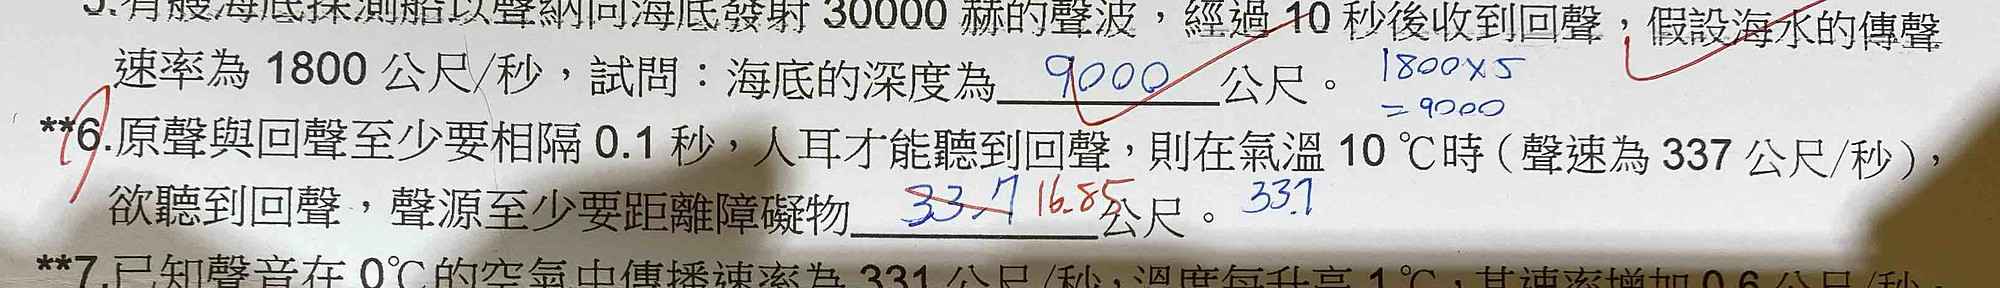 5.有艘海底探測船以聲納向海底發射 30000 赫的聲波，經過 10 秒後收到回聲，假設海水的傳聲
速率為 1800 公尺/秒，試問：海底的深度為 9000 公尺。 1800×5
=9000
**6.原聲與回聲至少要相隔 0.1 秒，人耳才能聽到回聲，則在氣溫 10 ℃時（聲速為 337 公尺/秒），
欲聽到回聲，聲源至少要距離障礙物 33.7 16.85 公尺。 33.7
**7.已知聲音在 0℃的空氣中傳播速率為 331 公尺/秒，溫度每升高 1 ℃，其速率增加 0.6 公尺/秒。